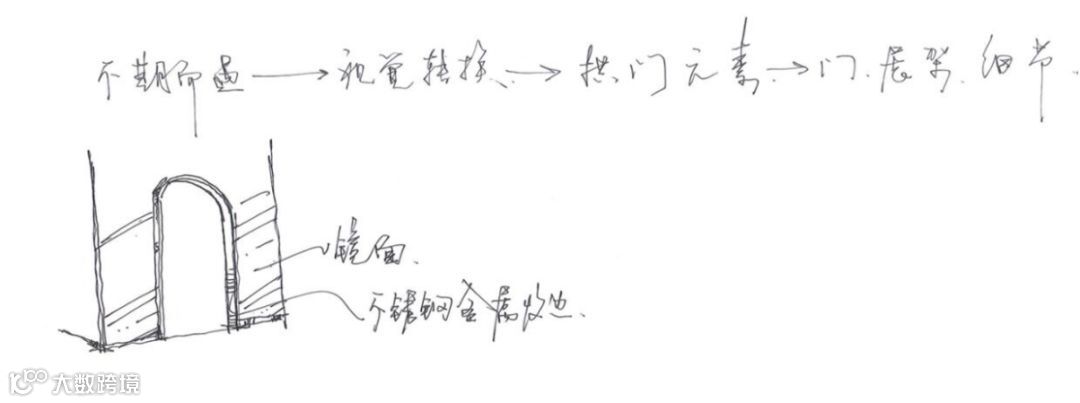 不期而遇→视觉转换→拱门元素→门.展架.细节.
镜面.
不锈钢金属收边.
大数跨境